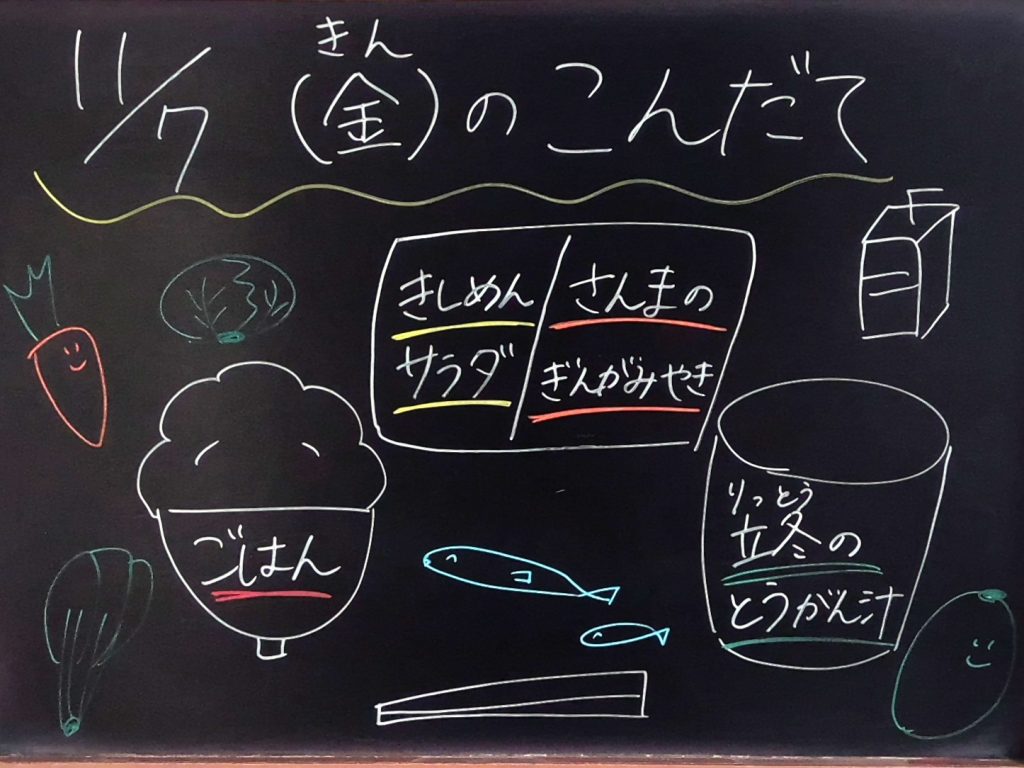 11/7(金)のこんだて
きん
きしめん
サラダ
さんまの
ぎんがみやき
ごはん
りっとう
立冬の
とうがん汁